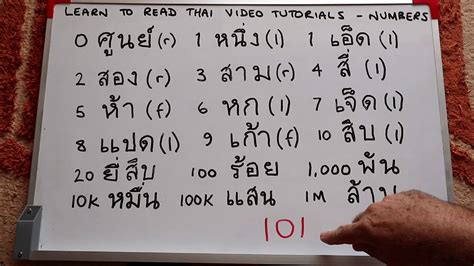 LEARN TO READ THAI VIDEO TUTORIALS - NUMBERS
0 ศูนย์ (r) 1 หนึ่ง (l) 1 เอ็ด (l)
2 สอง (r) 3 สาม (r) 4 สี่ (l)
5 ห้า (f) 6 หก (l) 7 เจ็ด (l)
8 แปด (l) 9 เก้า (f) 10 สิบ (l)
20 ยี่สิบ 100 ร้อย 1,000 พัน
10K หมื่น 100K แสน 1M ล้าน
101